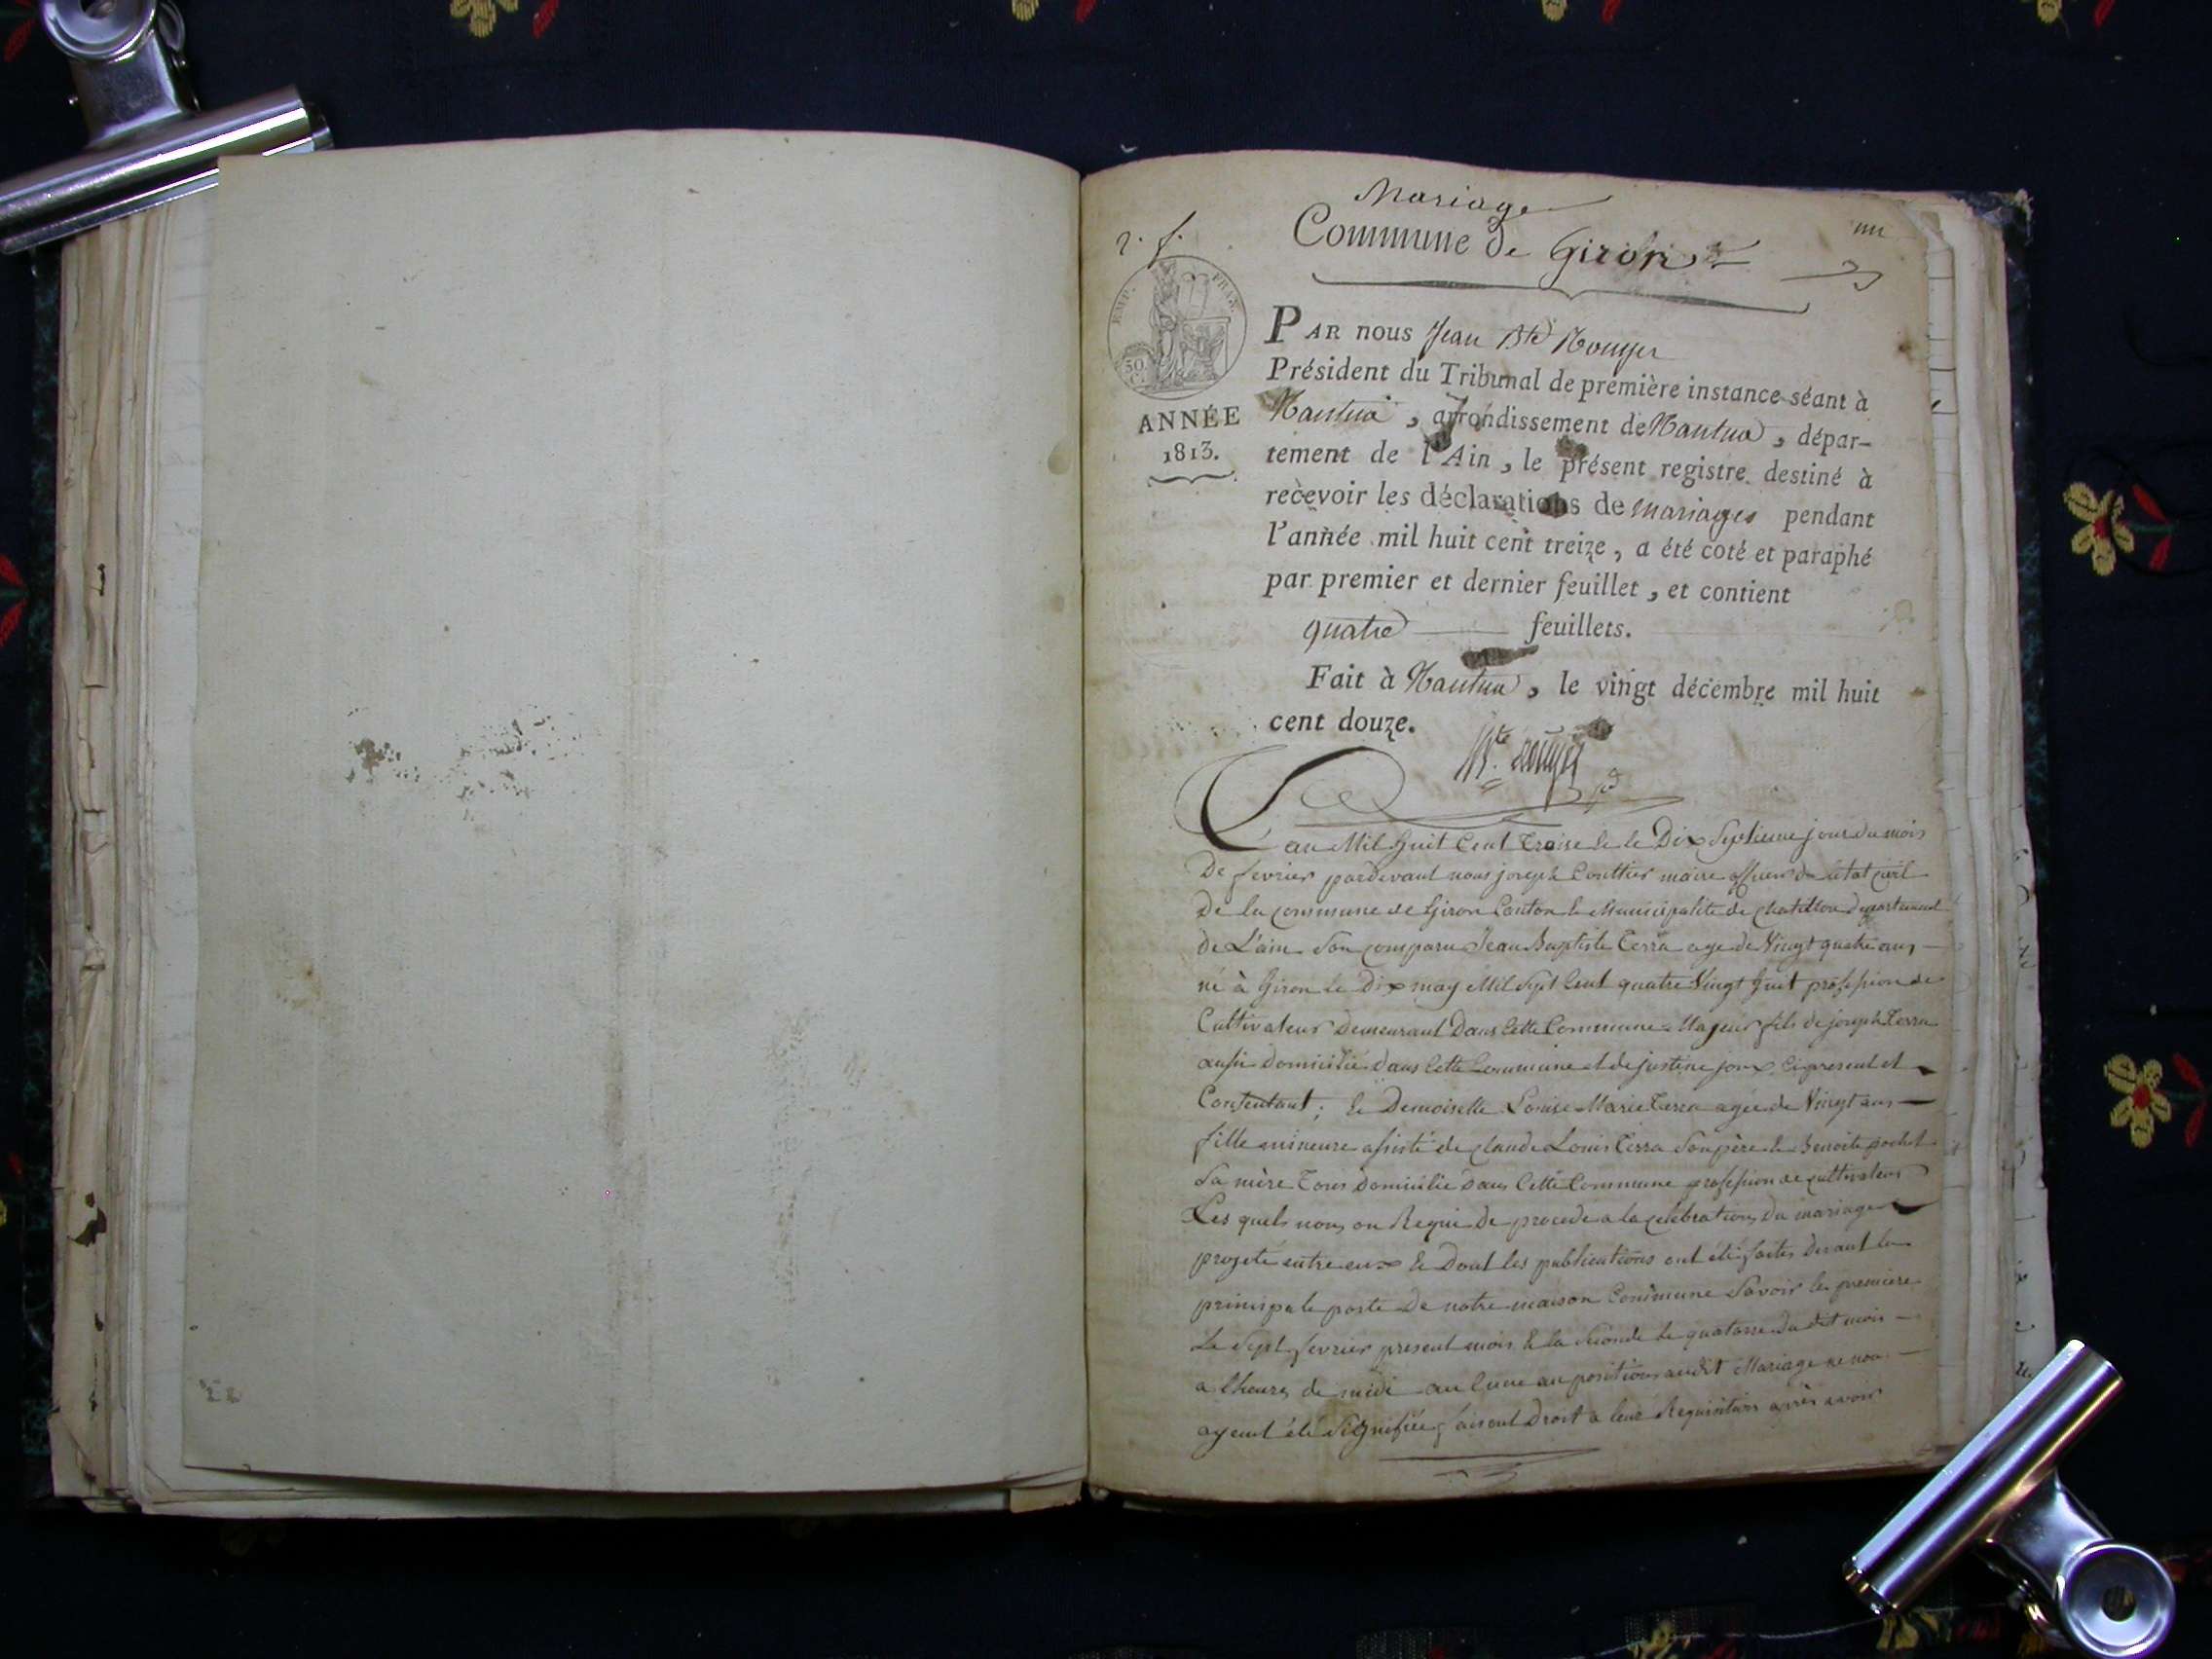 Mariage
Commune de Giron
un
2. f.
EMP. FRAN.
50
C.
ANNÉE
1813.
PAR nous Jean Bte Rouyer
Président du Tribunal de première instance séant à
Nantua, arrondissement de Nantua, dépar-
tement de l'Ain, le présent registre destiné à
recevoir les déclarations de mariages pendant
l'année mil huit cent treize, a été coté et paraphé
par premier et dernier feuillet, et contient
quatre feuillets.
Fait à Nantua, le vingt décembre mil huit
cent douze.
Bte. rouyer
L'an Mil huit Cent Treise & le Dix Septieme jour du mois
De fevrier pardevant nous joseph Couttier maire officier de letat civil
De la commune de Giron Canton & Municipalité de Chatillon Departement
de L'ain Son comparu Jean Baptiste Terra age de Vingt quatre ans
né à Giron le Dix may Mil Sept Cent quatre Vingt huit profession de
Cultivateur Demeurant Dans Cette Commune Majeur fils de joseph Terra
aussi domicilié dans Cette Commune et de justine joux Ci present et
Consentant; & Demoiselle Louise Marie Terra agée de Vingt ans
fille mineure assisté de Claude Louis Terra Son père & Benoite pochet
Sa mère Tous Domicilié Dans Cette Commune profession de cultivateur
Les quels nous on Requi de procede a la celebration du mariage
projeté entre eux & Dont les publications ont été faites devant la
principale porte De notre maison Commune Savoir la premiere
Le Sept fevrier present mois & la Seconde le quatorse du dit mois
a lheure de midi au Cune au position audit Mariage ne nou
ayent été Signifiée faisant Droit a leur Requisition après avoir
22